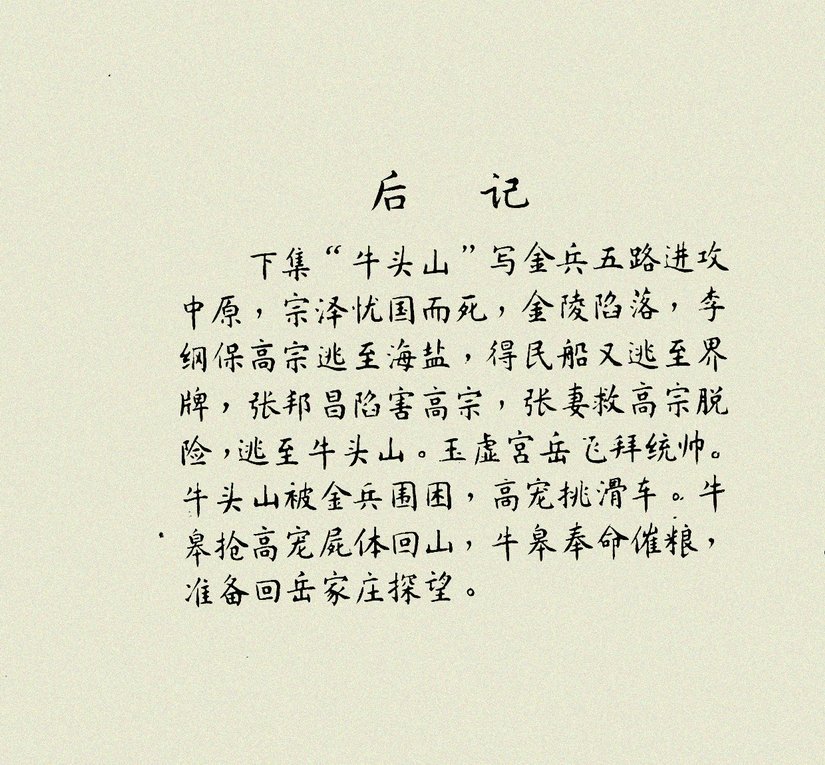 后 记
下集“牛头山”写金兵五路进攻
中原，宗泽忧国而死，金陵陷落，李
纲保高宗逃至海盐，得民船又逃至界
牌，张邦昌陷害高宗，张妻救高宗脱
险，逃至牛头山。玉虚宫岳飞拜统帅。
牛头山被金兵围困，高宠挑滑车。牛
皋抢高宠屍体回山，牛皋奉命催粮，
准备回岳家庄探望。